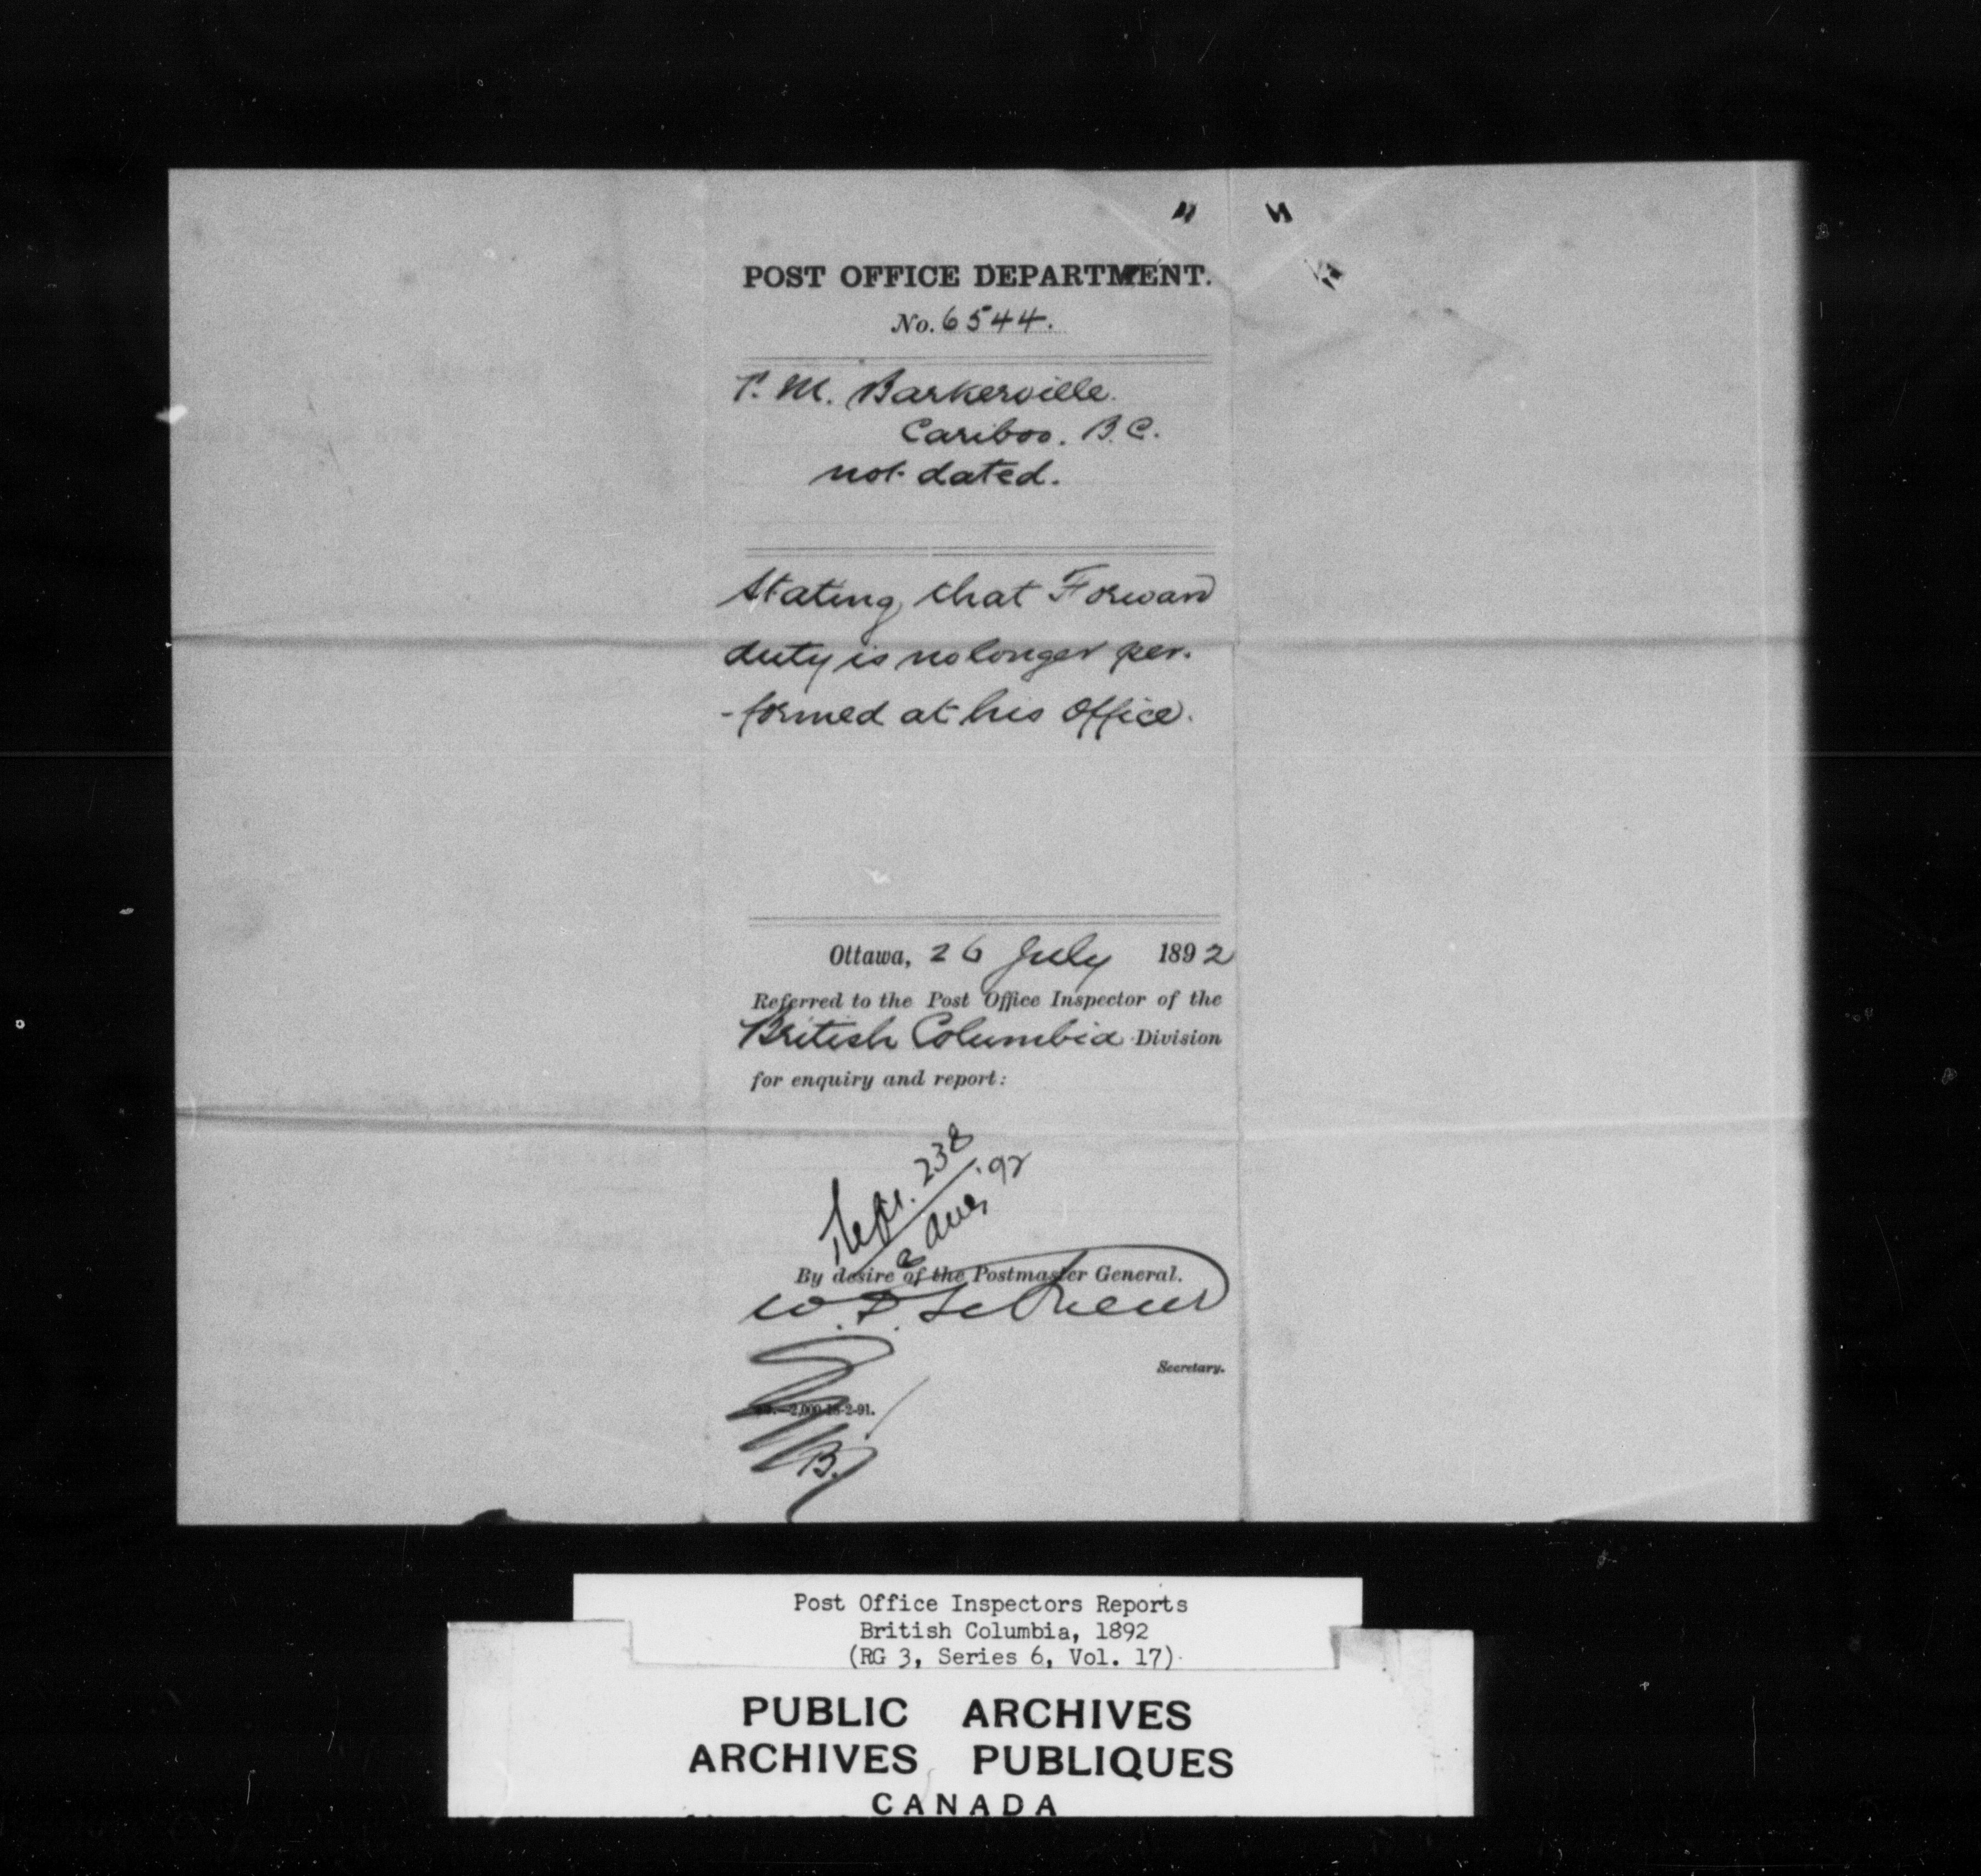 POST OFFICE DEPARTMENT.
No. 6544.
P. M. Barkerville.
Cariboo. B.C.
not dated.
Stating that Forward
duty is no longer per-
-formed at his Office.
Ottawa, 26 July 1892
Referred to the Post Office Inspector of the
British Columbia Division
for enquiry and report:
Rept. 238
2 Aug. 92
By desire of the Postmaster General.
W. D. LeSueur
Secretary.
-2,000-18-2-91.
B.
Post Office Inspectors Reports
British Columbia, 1892
(RG 3, Series 6, Vol. 17)
PUBLIC ARCHIVES
ARCHIVES PUBLIQUES
CANADA